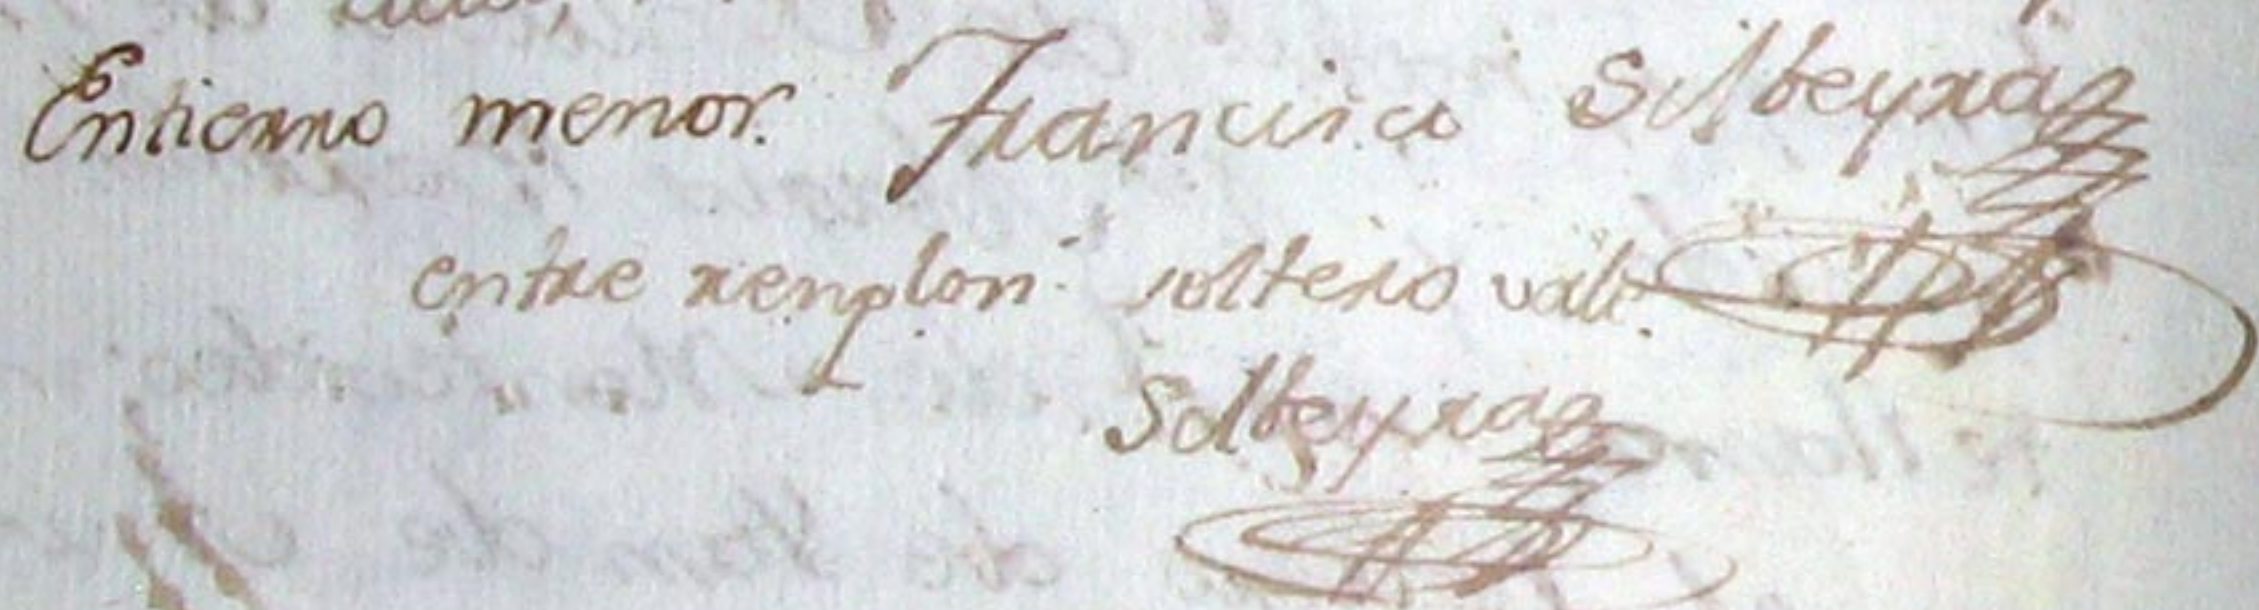 Entierro menor. Francisco Silbeyra
entre renplon. soltero vale.
Silbeyra